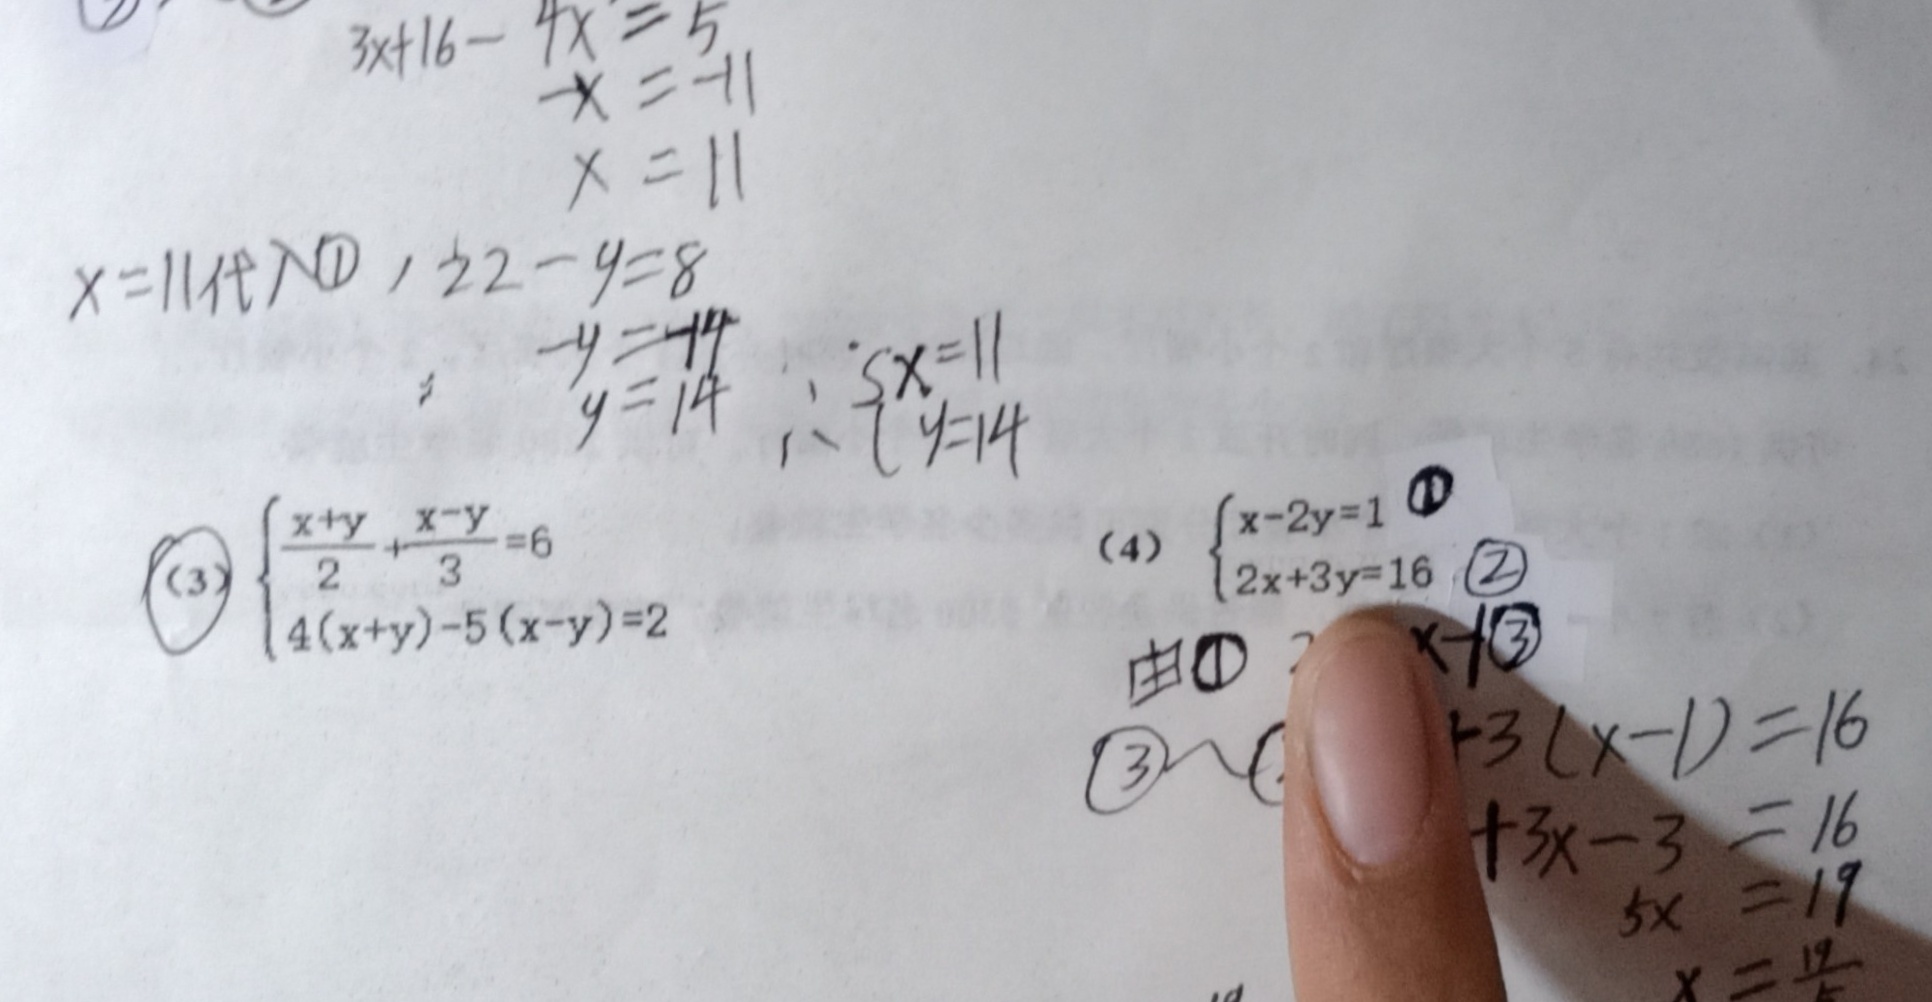 3x+16-4x=5
-x=-11
x=11
x=11代入①,22-y=8
-y=-14
y=14 ∴{x=11
y=14
(3) {(x+y)/2+(x-y)/3=6
4(x+y)-5(x-y)=2
(4) {x-2y=1 ①
2x+3y=16 ②
由① x-1③
③ +3(x-1)=16
+3x-3=16
5x=19
x=19/5